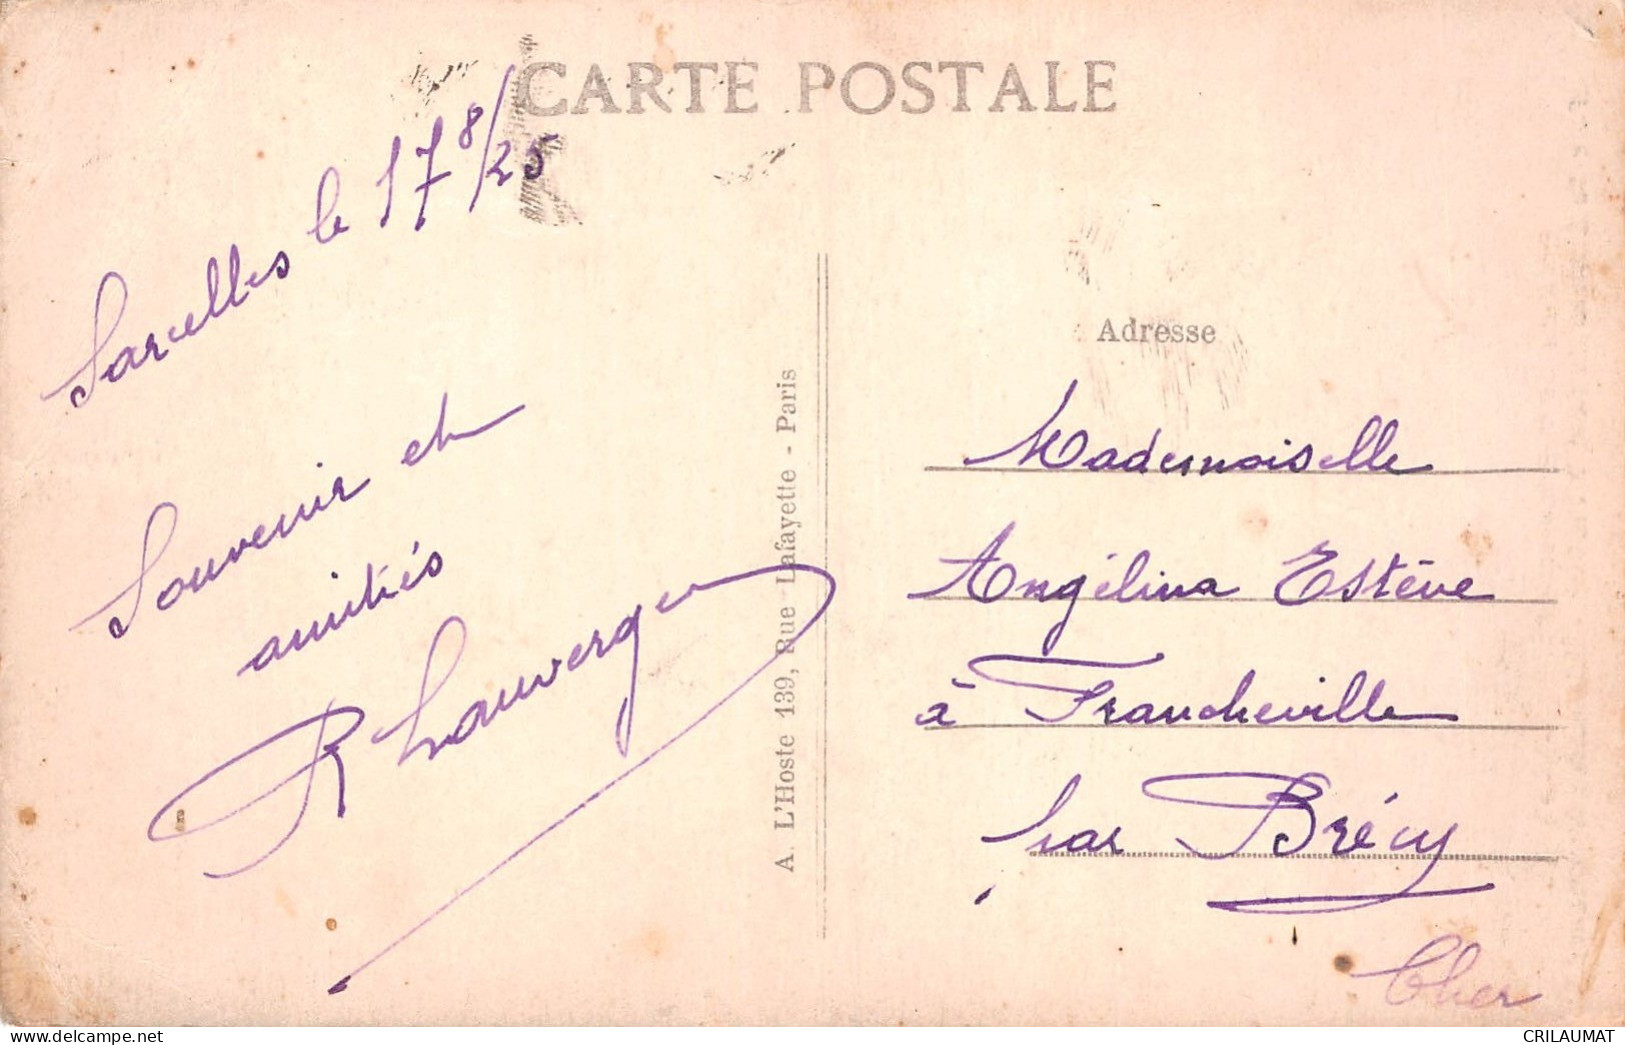 CARTE POSTALE
Sarcelles le 17 8/25
Souvenir et
amitiés
R Lauvergeu
A. L'Hoste 139, Rue Lafayette - Paris
Adresse
Mademoiselle
Angélina Estève
à Francheville
par Brécy
Cher
www.delcampe.net
CRILAUMAT